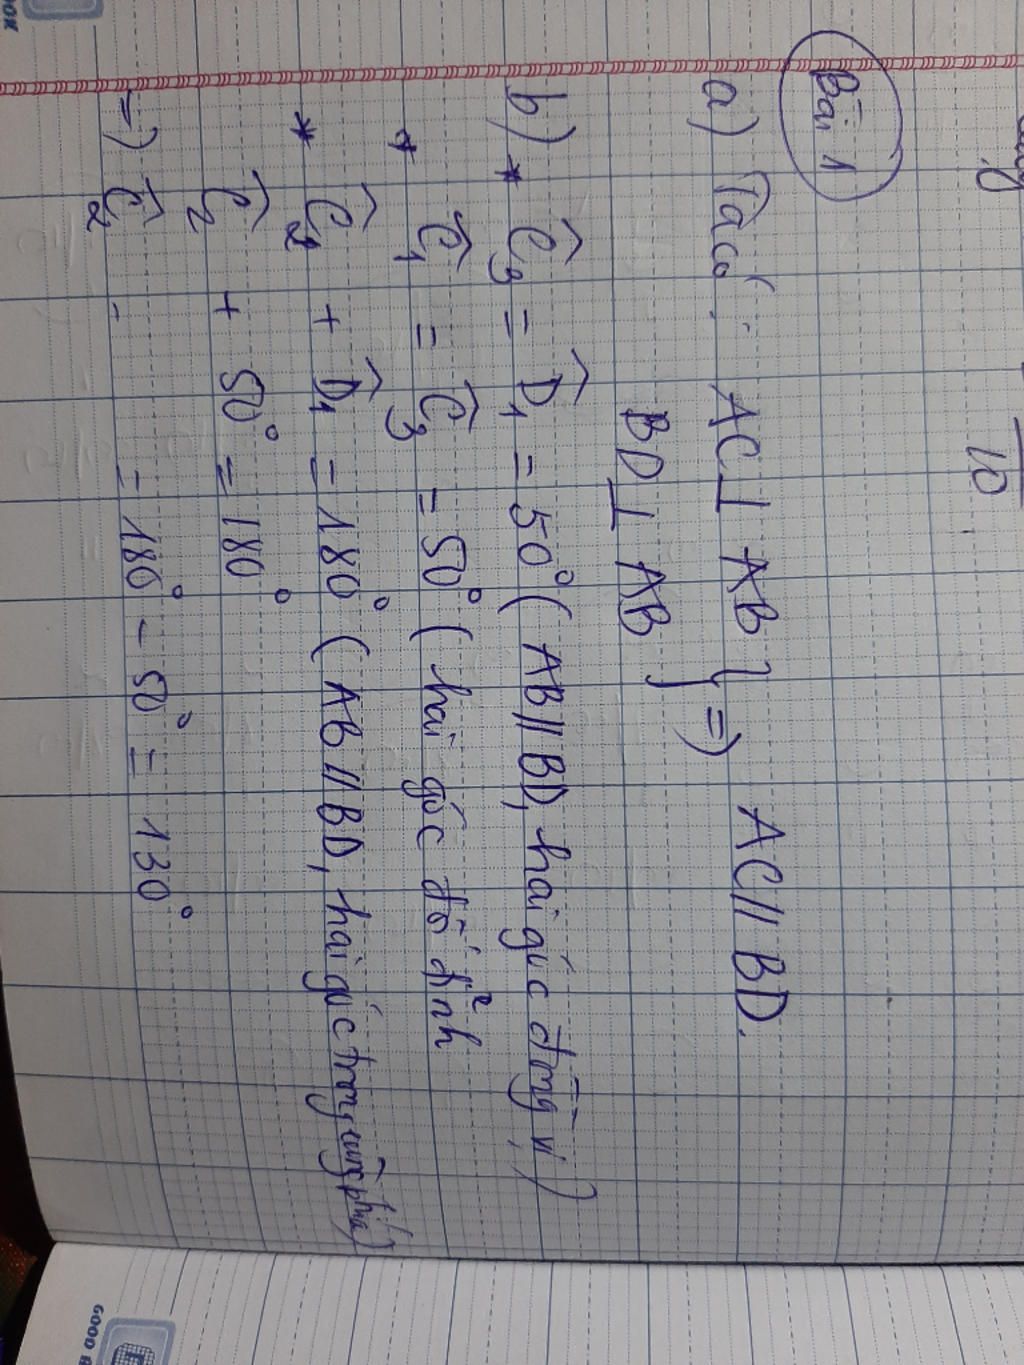 10
Bài 1
a) Ta có : AC ⊥ AB } => AC // BD.
BD ⊥ AB
b) * Ĉ3 = D̂1 = 50° ( AB // BD, hai góc đồng vị )
* Ĉ1 = Ĉ3 = 50° ( hai góc đối đỉnh
* Ĉ2 + D̂1 = 180° ( AB // BD, hai góc trong cùng phía )
Ĉ2 + 50° = 180°
=) Ĉ2 = 180° - 50° = 130°